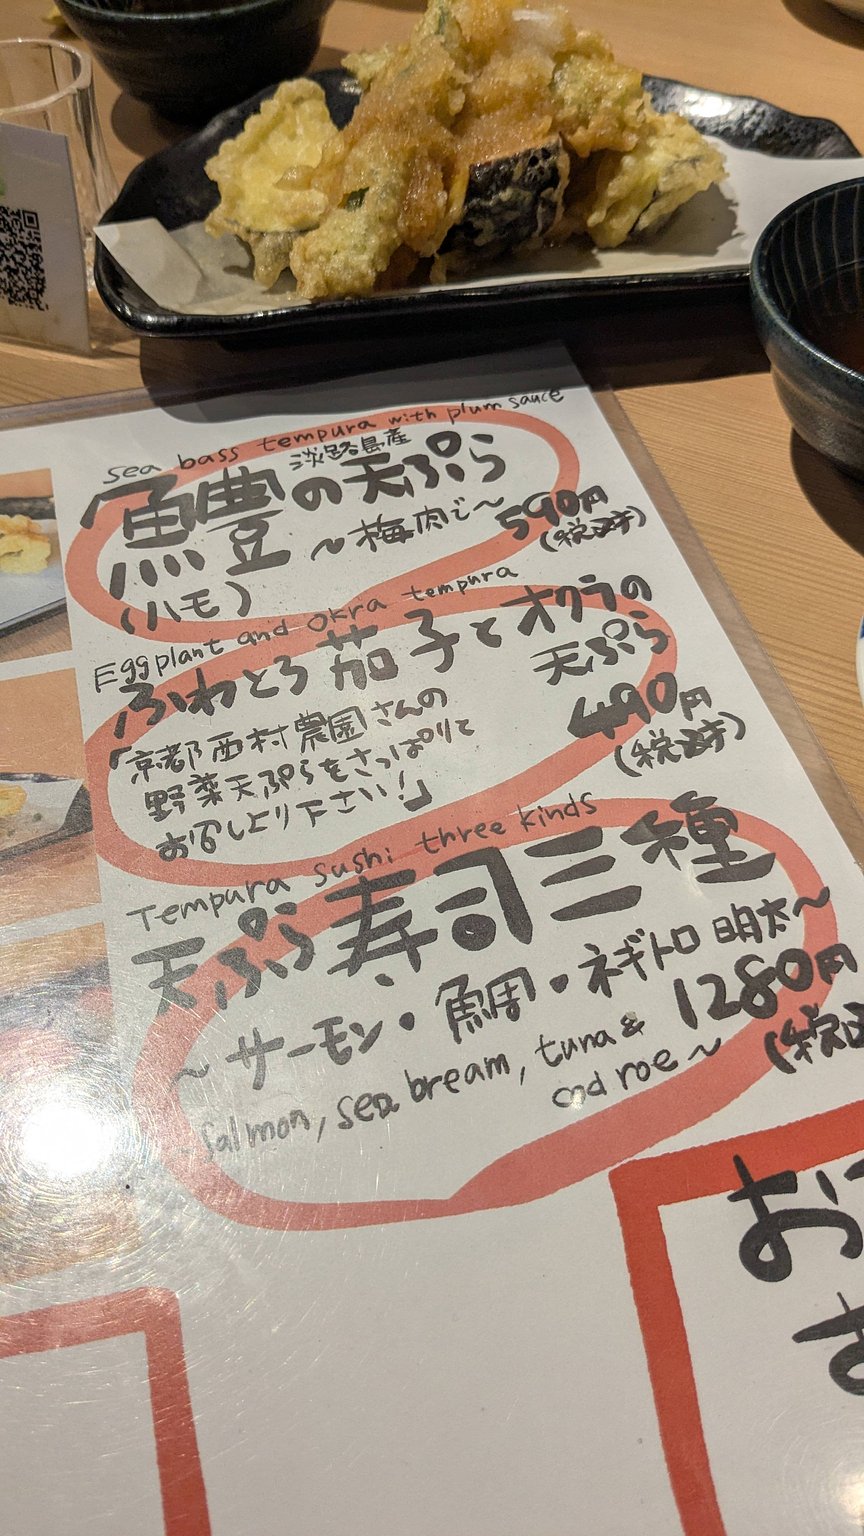 sea bass tempura with plum sauce
淡路島産
鱧の天ぷら
(ハモ)
~梅肉で~
590円
(税込)
Eggplant and Okra tempura
ふわとろ茄子とオクラの
天ぷら
490円
(税込)
「京都西村農園さんの
野菜天ぷらをさっぱりと
お召し上り下さい!」
Tempura sushi three kinds
天ぷら寿司三種
~サーモン・鯛・ネギトロ明太~
1280円
(税込
salmon, sea bream, tuna &
cod roe~
お